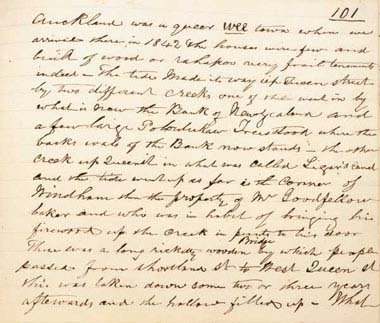 101
Auckland was a queer wee town when we
arrived there in 1842 the houses were few and
built of wood or rahapoo very frail tenements
indeed – The tide made its way up Queen street
by two different creeks one of them went in by
what is now the Bank of New Zealand and
a few large Pohutukaw Trees stood where the
backs wall of the Bank now stands – the other
creek up Queen st in what was called Ligar's Canal
and the tide went up as far as the Corner of
Windham then the property of Mr Goodfellow
baker and who was in habit of bringing his
firewood up the Creek in punts to his door
There was a long rickety wooden Bridge by which people
passed from Shortland St to West Queen St
this was taken down some two or three years
afterwards and the hollow filled up – What